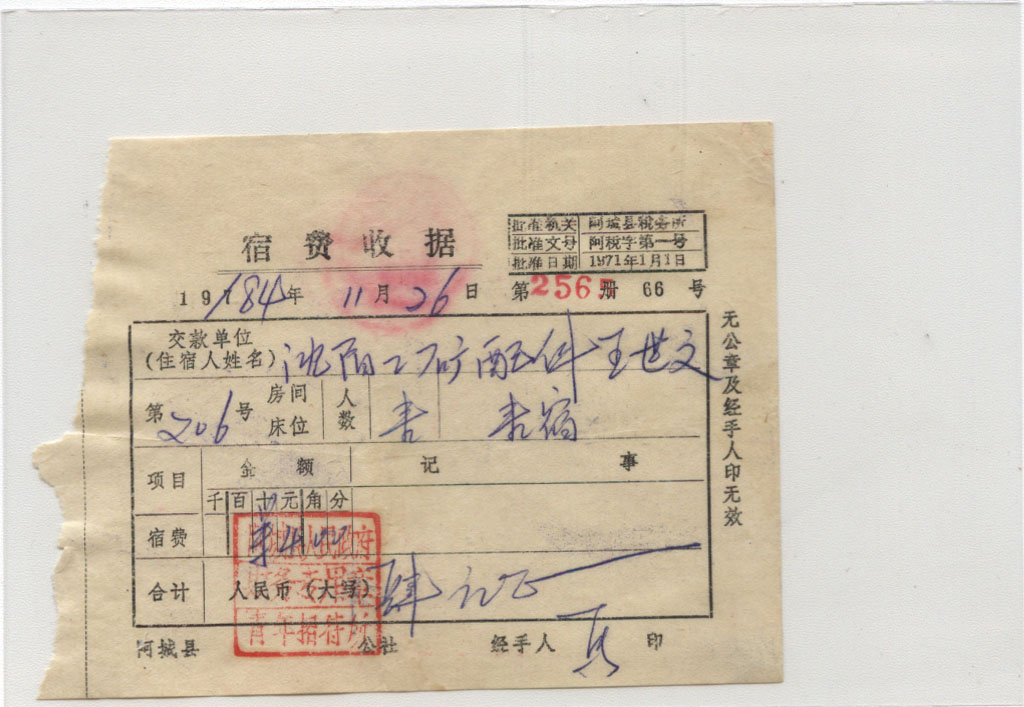 宿费收据
批准机关 阿城县税务所
批准文号 阿税字第一号
批准日期 1971年1月1日
1984年 11月 26日 第 256 册 66 号
交款单位
(住宿人姓名) 沈阳工矿配件 王世文
第 206 号 房间 床位 人数 壹 壹宿
项目 金额 记事
千百十元角分
宿费 ¥4 00
合计 人民币(大写) 肆元正
阿城县 公社 经手人 印
无公章及经手人印无效
阿城县人民政府
青年招待所